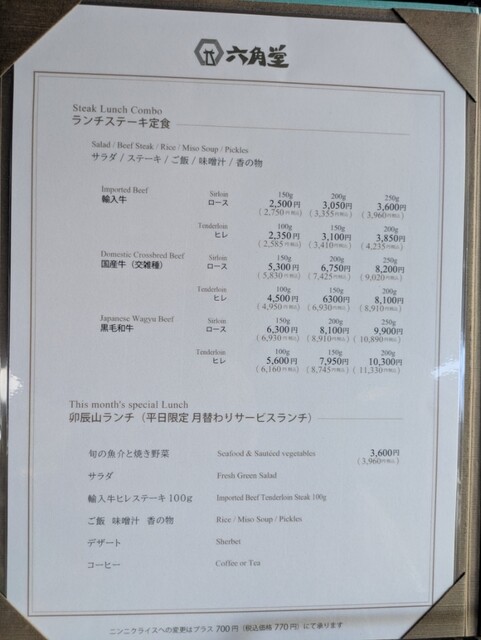 六角堂
Steak Lunch Combo
ランチステーキ定食
Salad / Beef Steak / Rice / Miso Soup / Pickles
サラダ / ステーキ / ご飯 / 味噌汁 / 香の物
Imported Beef Sirloin 150g 200g 250g
輸入牛 ロース 2,500円 3,050円 3,600円
(2,750円税込) (3,355円税込) (3,960円税込)
Tenderloin 100g 150g 200g
ヒレ 2,350円 3,100円 3,850円
(2,585円税込) (3,410円税込) (4,235円税込)
Domestic Crossbred Beef Sirloin 150g 200g 250g
国産牛（交雑種） ロース 5,300円 6,750円 8,200円
(5,830円税込) (7,425円税込) (9,020円税込)
Tenderloin 100g 150g 200g
ヒレ 4,500円 6300円 8,100円
(4,950円税込) (6,930円税込) (8,910円税込)
Japanese Wagyu Beef Sirloin 150g 200g 250g
黒毛和牛 ロース 6,300円 8,100円 9,900円
(6,930円税込) (8,910円税込) (10,890円税込)
Tenderloin 100g 150g 200g
ヒレ 5,600円 7,950円 10,300円
(6,160円税込) (8,745円税込) (11,330円税込)
This month's special Lunch
卯辰山ランチ（平日限定 月替わりサービスランチ）
旬の魚介と焼き野菜 Seafood & Sautéed vegetables 3,600円
(3,960円税込)
サラダ Fresh Green Salad
輸入牛ヒレステーキ100g Imported Beef Tenderloin Steak 100g
ご飯 味噌汁 香の物 Rice / Miso Soup / Pickles
デザート Sherbet
コーヒー Coffee or Tea
ニンニクライスへの変更はプラス 700円（税込価格 770円）にて承ります